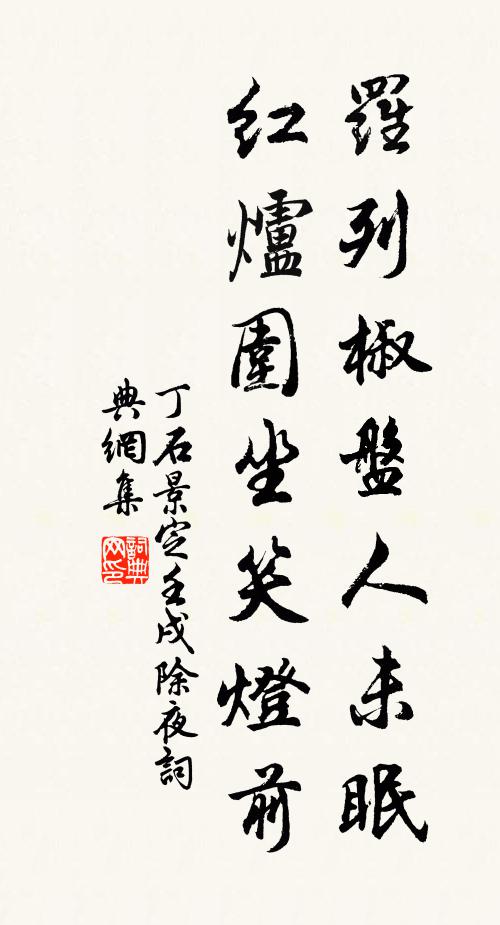 羅列椒盤人未眠
紅爐圍坐笑燈前
丁石景定壬戌除夜詞
典網集
詞典网印